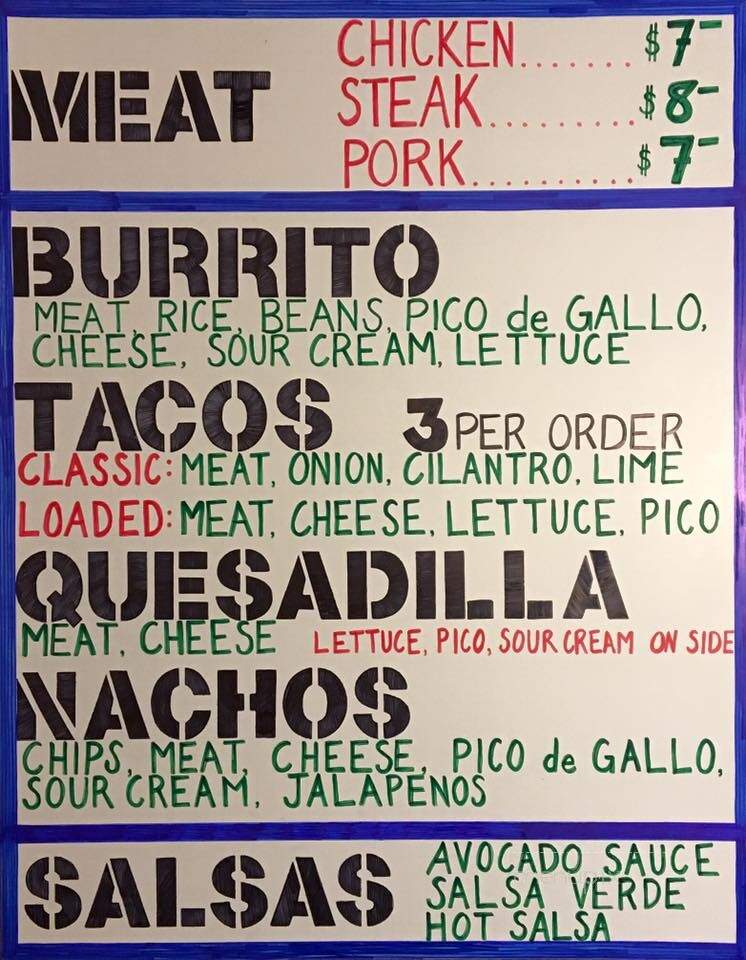 MEAT
CHICKEN.......$7-
STEAK.........$8-
PORK..........$7-
BURRITO
MEAT, RICE, BEANS, PICO de GALLO,
CHEESE, SOUR CREAM, LETTUCE
TACOS 3 PER ORDER
CLASSIC: MEAT, ONION, CILANTRO, LIME
LOADED: MEAT, CHEESE, LETTUCE, PICO
QUESADILLA
MEAT, CHEESE LETTUCE, PICO, SOUR CREAM ON SIDE
NACHOS
CHIPS, MEAT, CHEESE, PICO de GALLO,
SOUR CREAM, JALAPENOS
SALSAS
AVOCADO SAUCE
SALSA VERDE
HOT SALSA